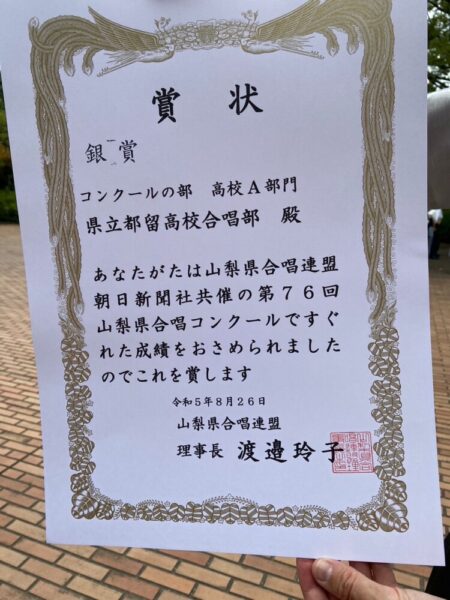 賞状
銀賞
コンクールの部 高校A部門
県立都留高校合唱部 殿
あなたがたは山梨県合唱連盟
朝日新聞社共催の第76回
山梨県合唱コンクールですぐ
れた成績をおさめられました
のでこれを賞します
令和5年8月26日
山梨県合唱連盟
理事長 渡邉玲子